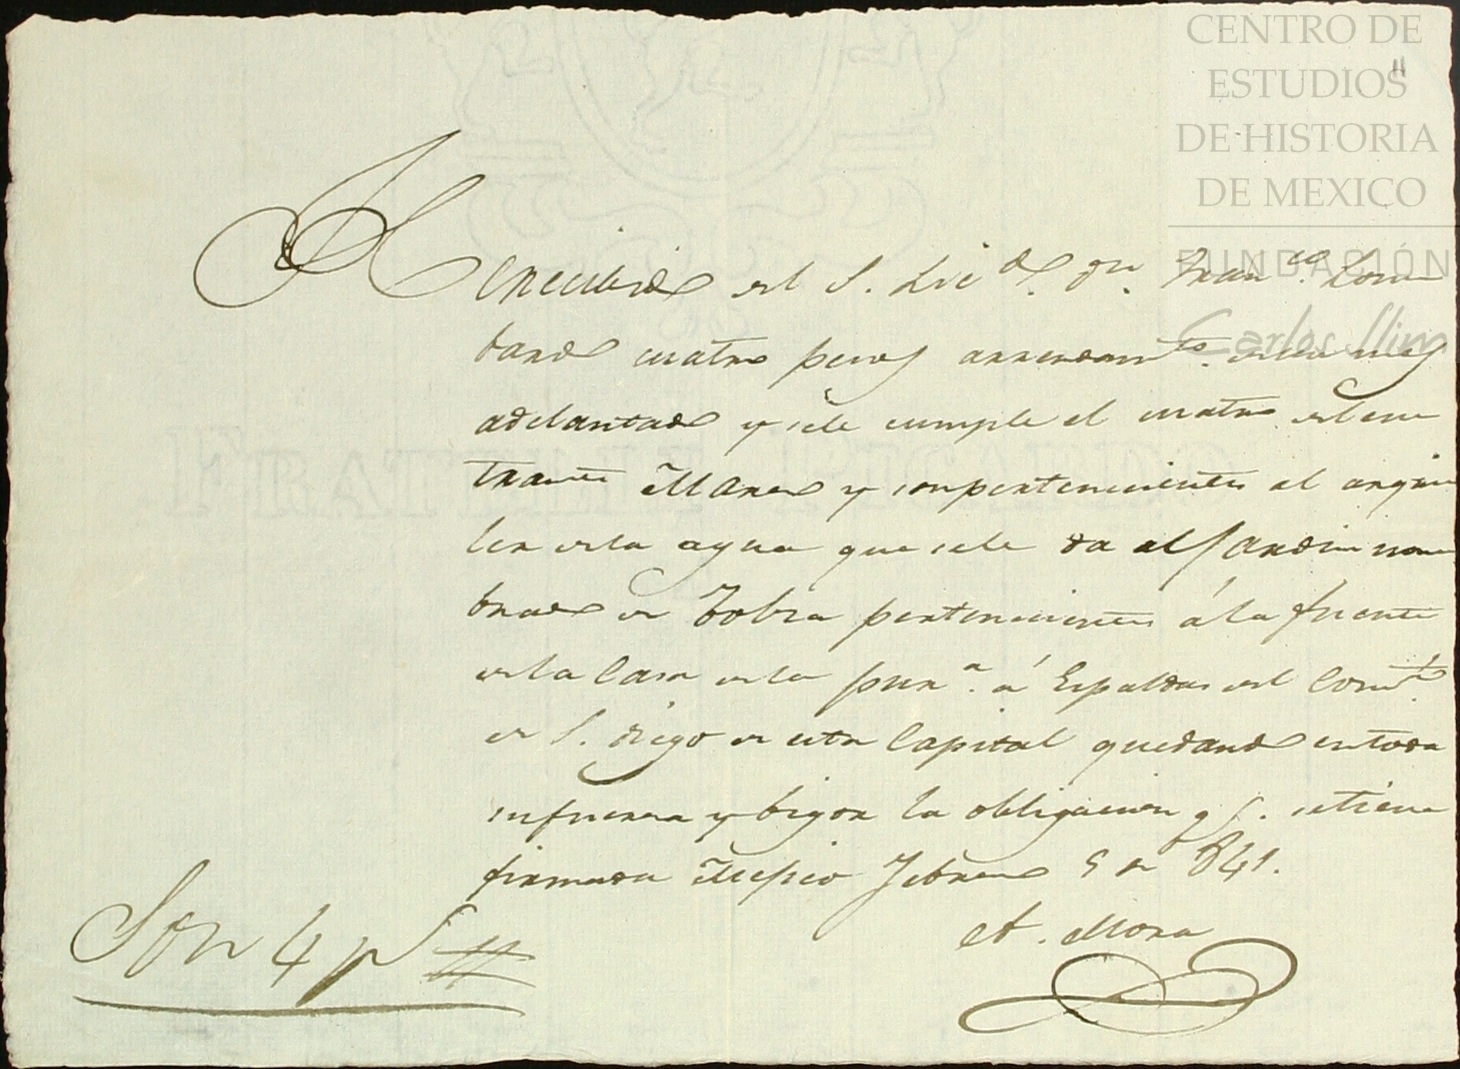 CENTRO DE
ESTUDIOS
DE HISTORIA
DE MEXICO
FUNDACIÓN
Carlos Slim
11
He recibido del S. Licdo. Dn. Franco. Lom
bardo cuatro pesos arrendamto. de un mes
adelantado y sele cumple el cuatro del en
trante Marzo y son pertenecientes al arqui
ler dela agua que sele da al Jardin nom
brado de Tolsa pertenecientes á la fuente
dela Casa dela pila. á Espaldas del Convto.
de S. Diego de esta Capital quedando en toda
su fuerza y bigor la obligacion q. se tiene
firmada Mejico Febrero 5 de 841.
A. Mora
Son 4 ps
FRATELLI PICARDO